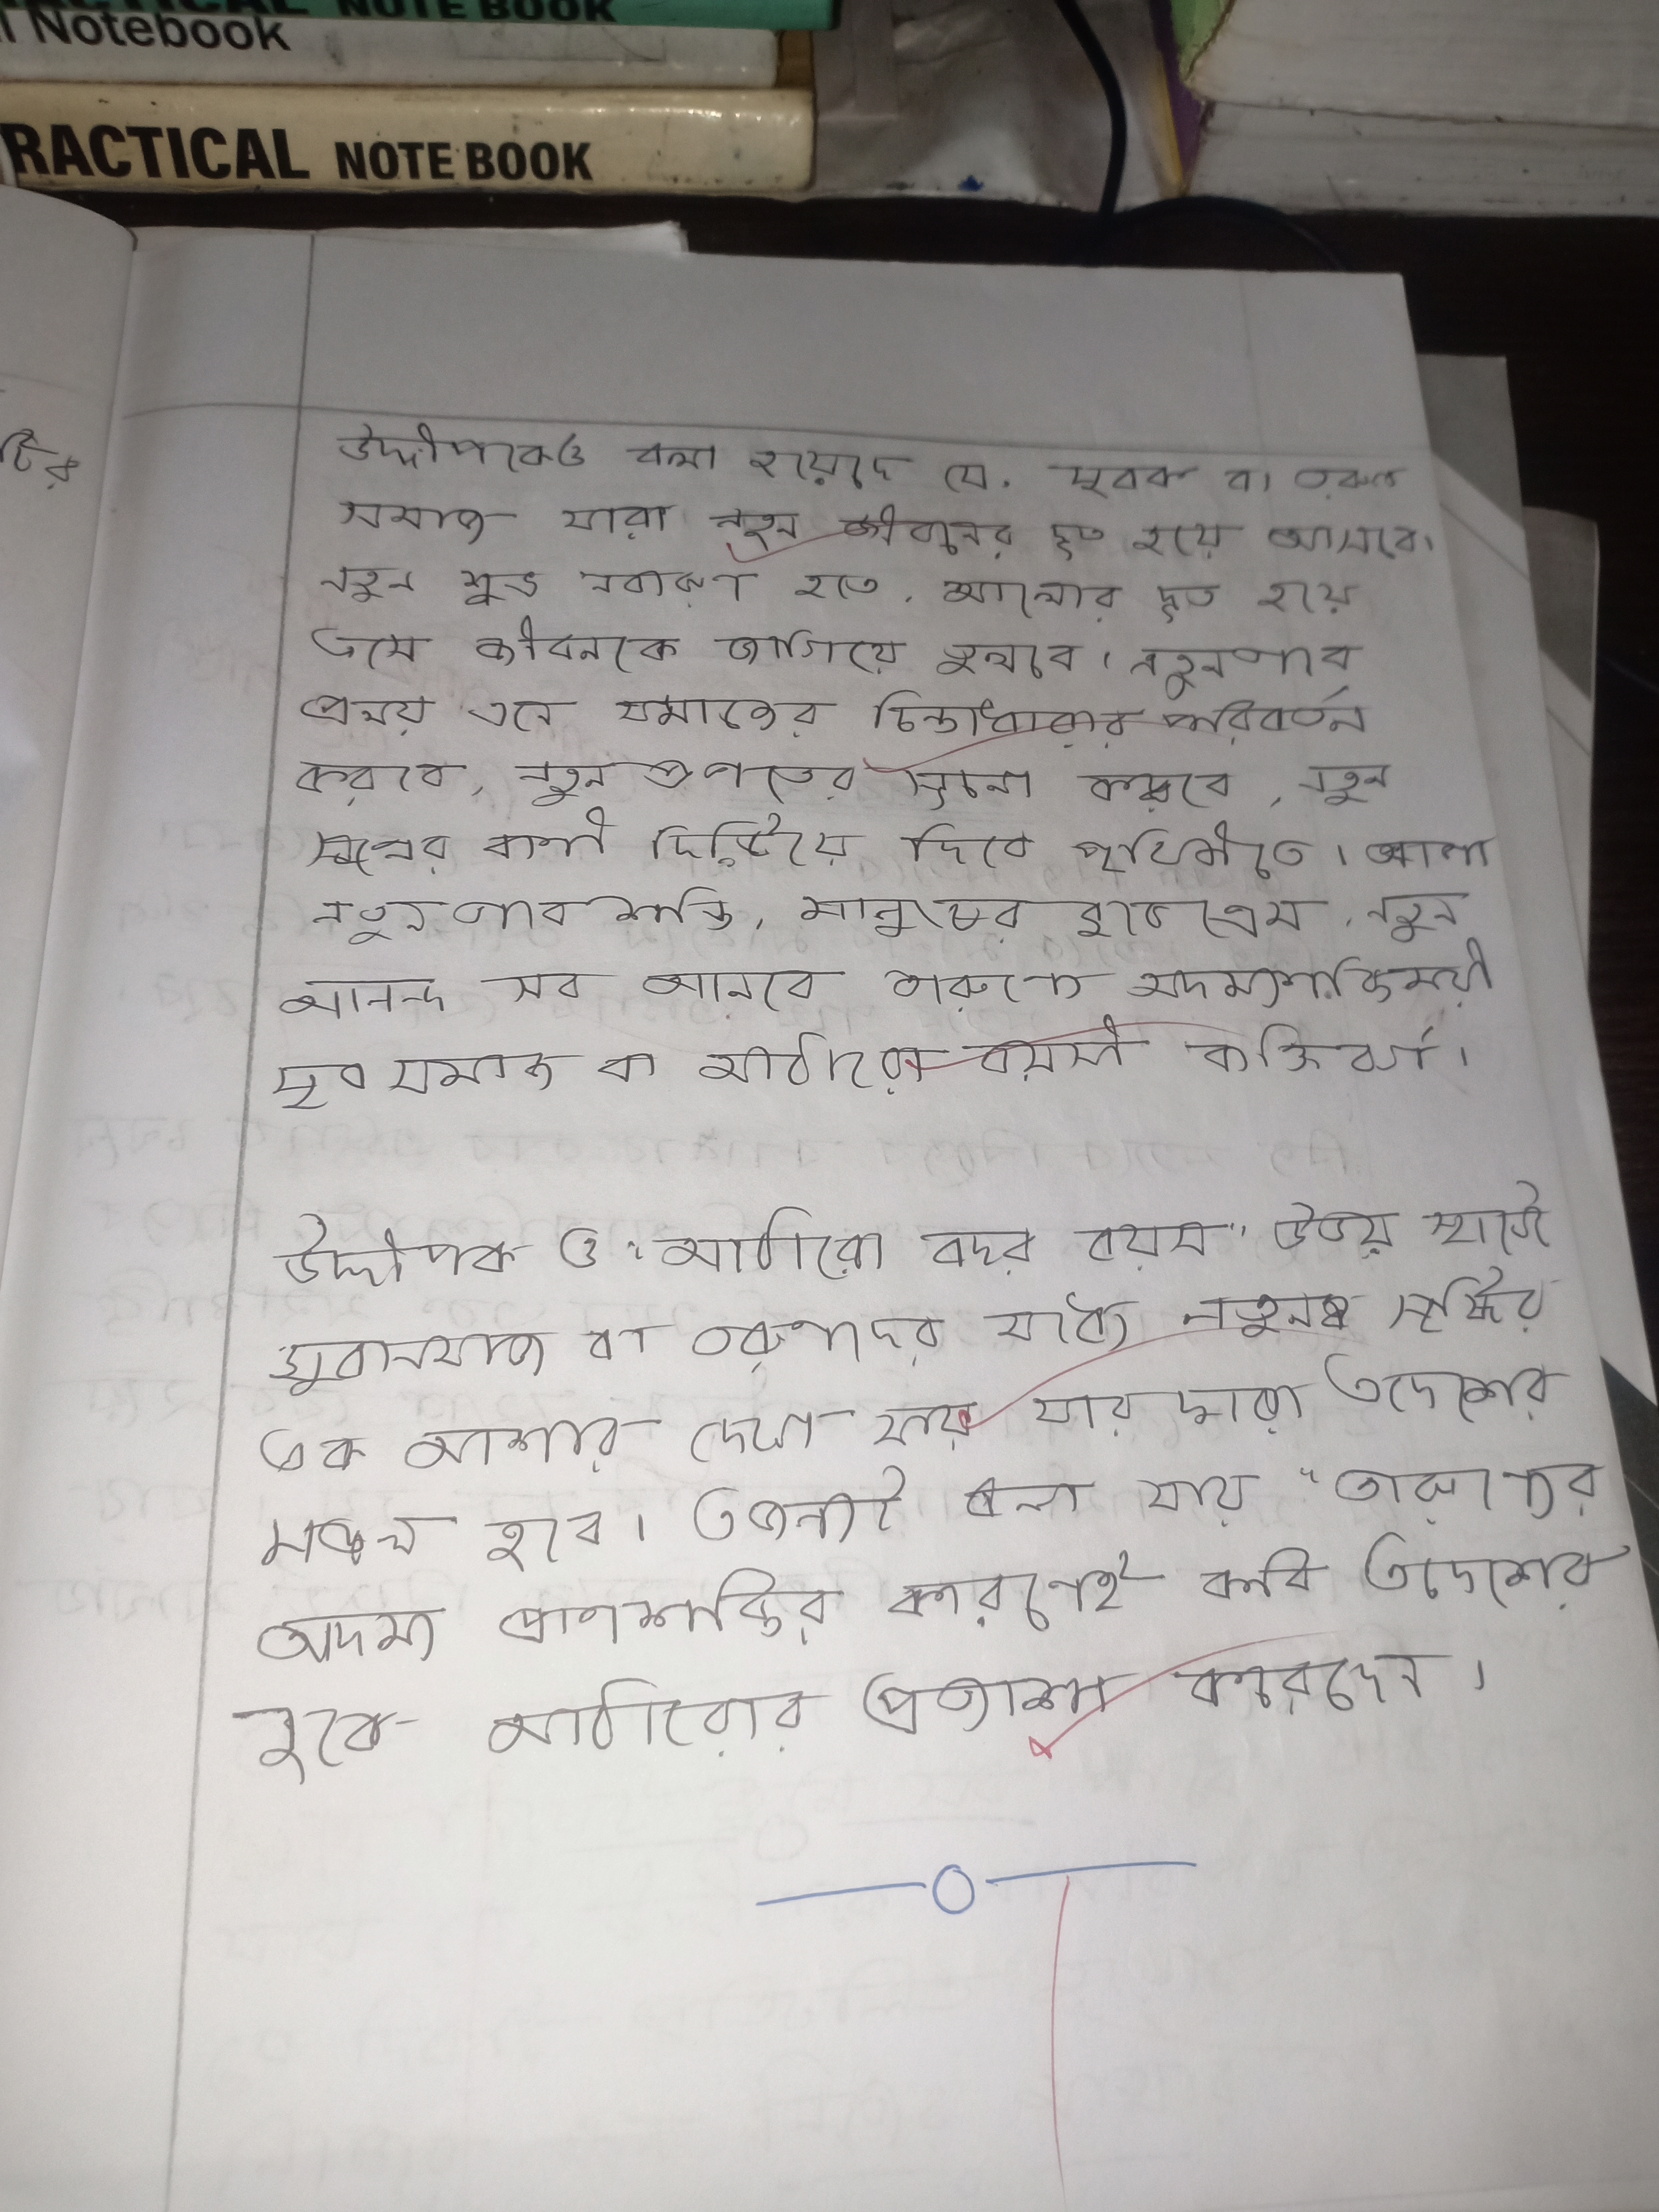 PRACTICAL NOTE BOOK
Notebook
RACTICAL NOTE BOOK
টির
উদ্দীপকেও বলা হয়েছে যে, যুবক বা তরুণ
সমাজ যারা নতুন জীবনের দূত হয়ে আসবে।
নতুন শুভ নবারুণ হতে, আলোর দূত হয়ে
এসে জীবনকে জাগিয়ে তুলবে। নতুনভাবে
প্রলয় এনে সমাজের চিন্তাধারার পরিবর্তন
করবে, নতুন প্রভাতের সূচনা করবে, নতুন
সৃজনের বাণী দিয়ে দিবে পৃথিবীতে। আশা
নতুনভাবে শান্তি, মানুষের বুকে প্রেম, নতুন
আনন্দ সব আনবে তারুণ্যে অদম্যশক্তিময়ী
যুব সমাজ বা আঠারো বয়সী ব্যক্তিবর্গ।
উদ্দীপক ও "আঠারো বছর বয়স" উভয় স্থানেই
যুবাসমাজ বা তরুণদের মধ্যে নতুনত্ব সৃষ্টির
এক আশার দেখা যায় যার দ্বারা এদেশের
মঙ্গল হবে। এজন্যই বলা যায় "তারুণ্যের
অদম্য প্রাণশক্তির কারণেই কবি এদেশের
বুকে আঠারোর প্রত্যাশা করেছেন।